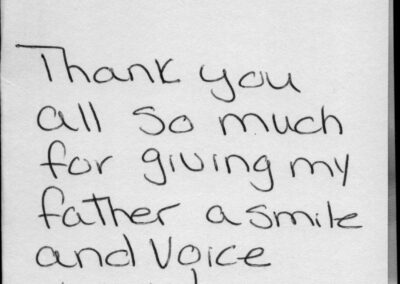 Thank you
all so much
for giving my
father a smile
and Voice